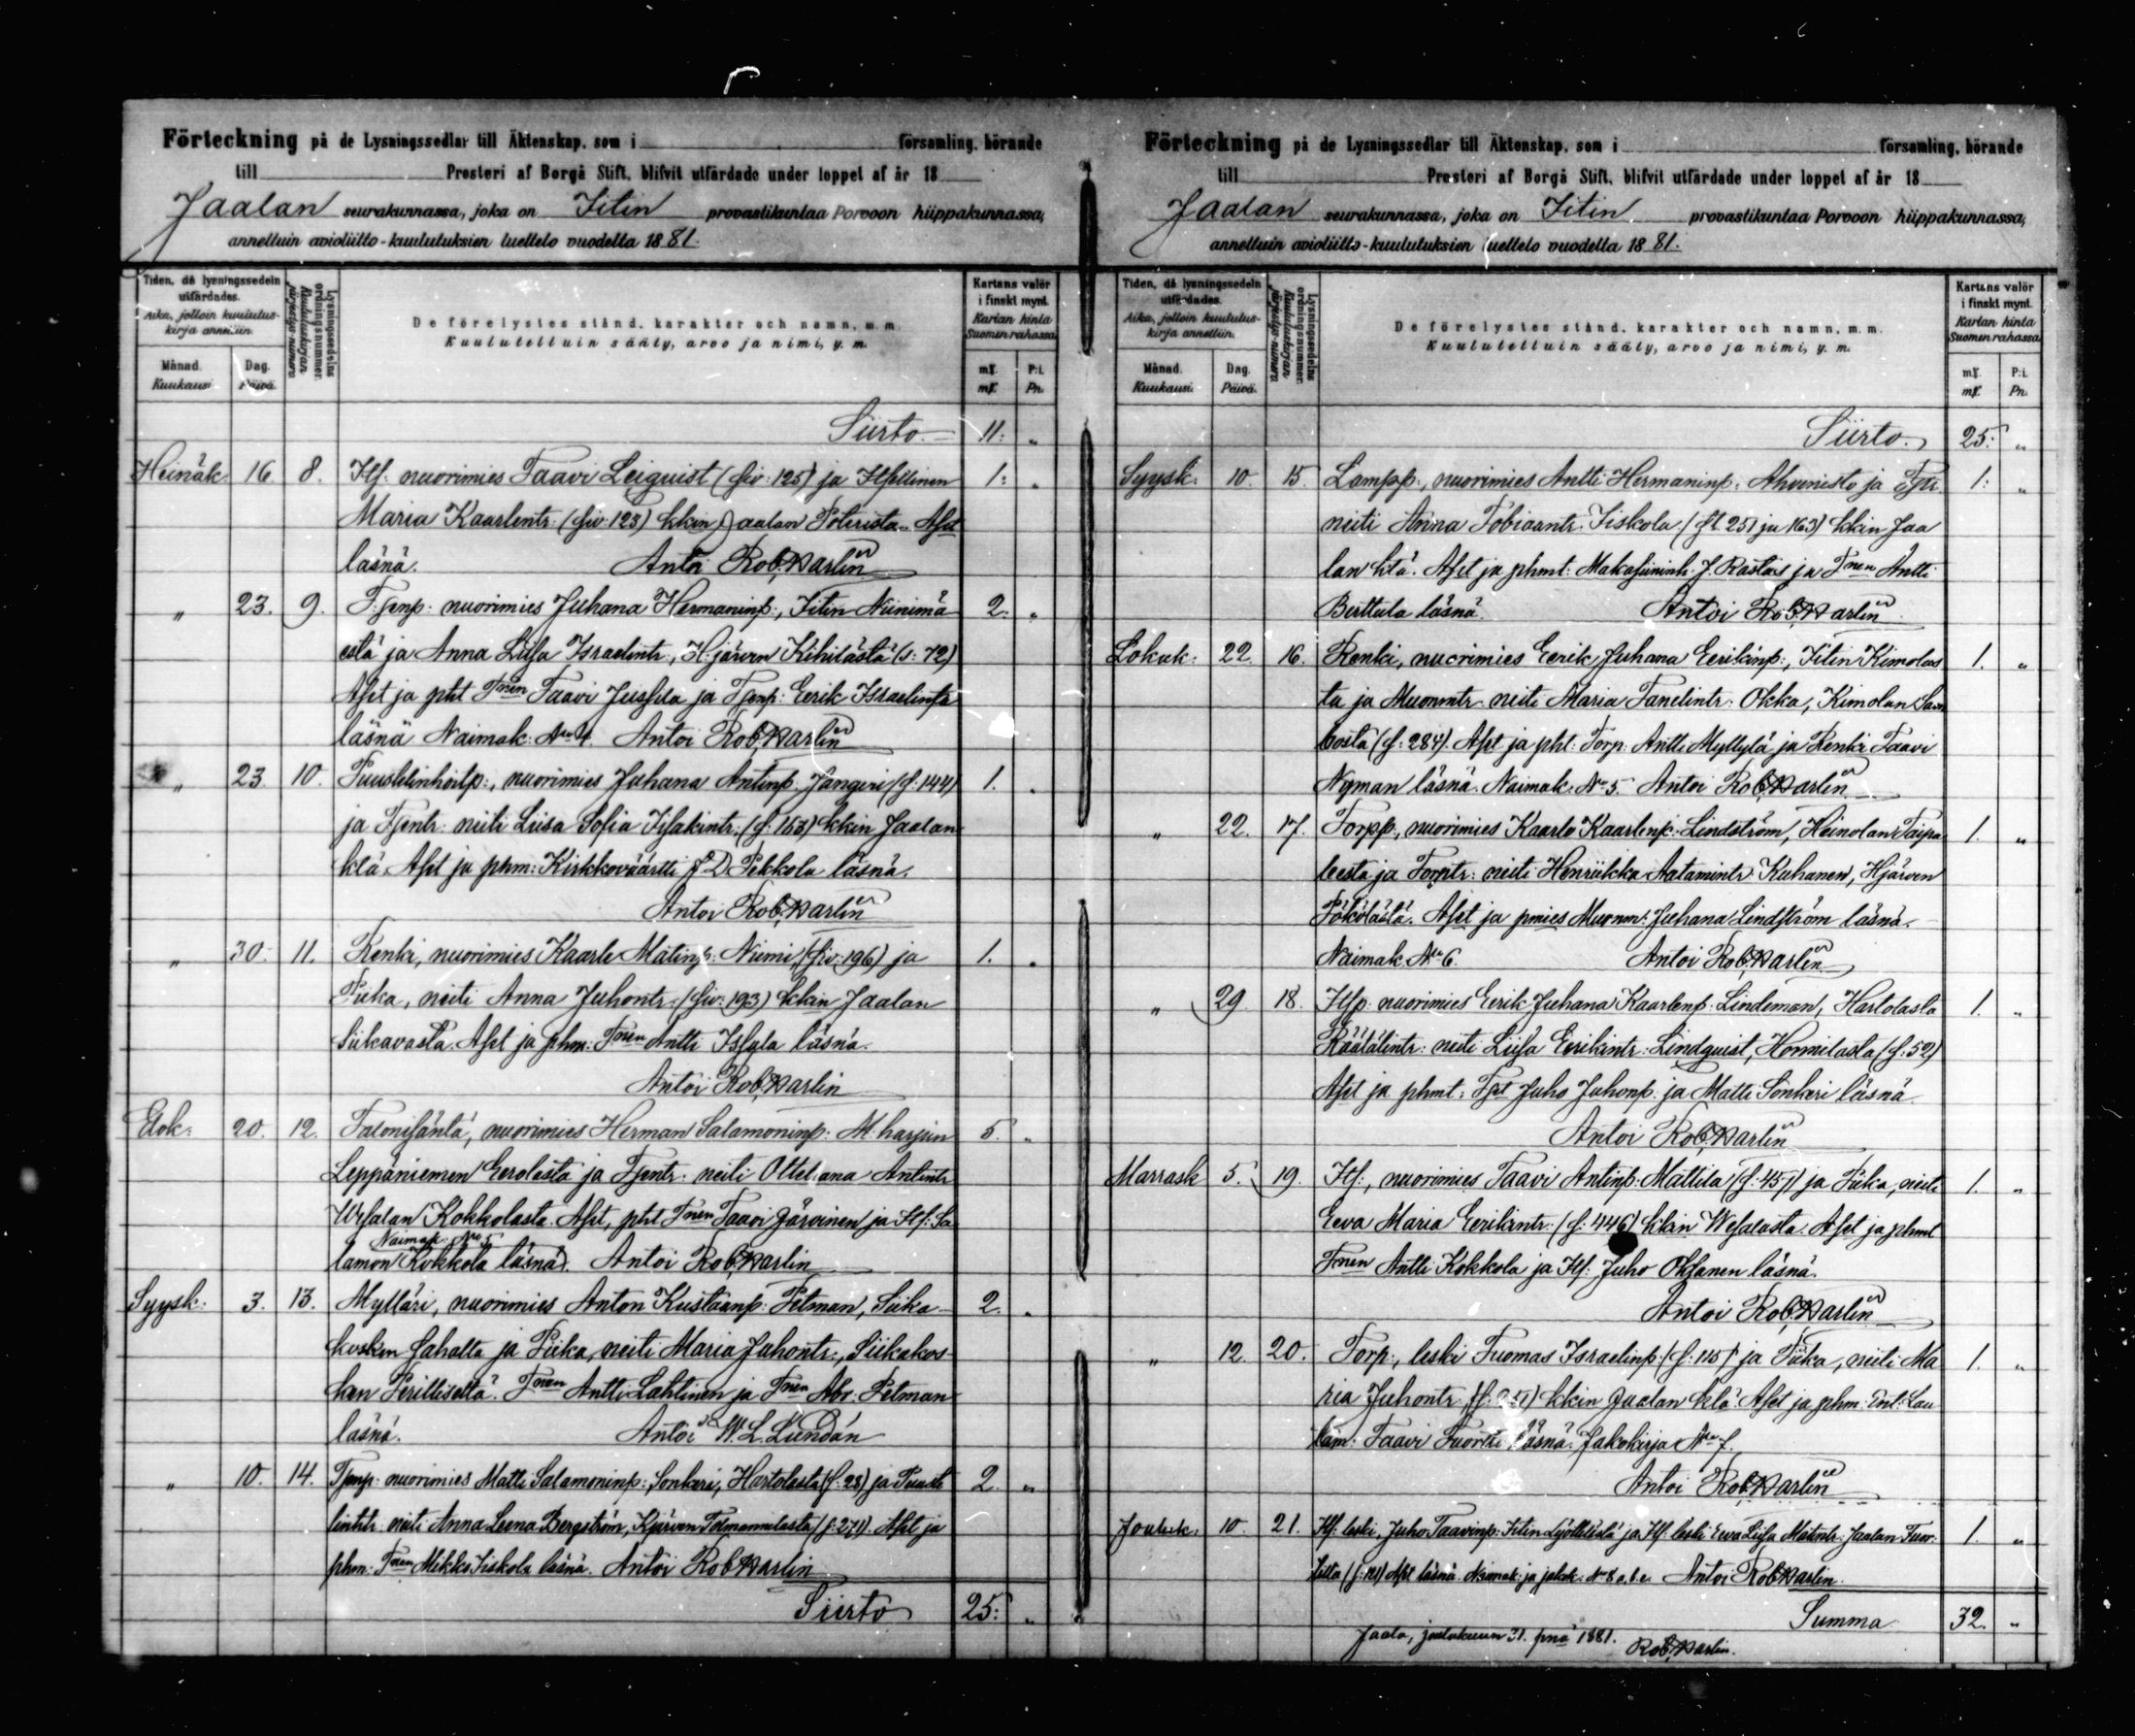 Förteckning på de Lysningssedlar till Äktenskap, som i församling, hörande
till Prosteri af Borgå Stift, blifvit utfärdade under loppet af år 18
Jaalan seurakunnassa, joka on Iitin provastikuntaa Porvoon hiippakunnassa,
annettuin avioliitto-kuulutuksien luettelo vuodelta 1881.
Tiden, då lysningssedeln utfärdades.
Aika, jolloin kuulutus-kirja annettiin.
Månad. Kuukausi.
Dag. Päivä.
Lysningssedelns ordningsnummer.
Kuulutuskirjan järjestys-numero
De förelystes stånd, karakter och namn, m. m.
Kuulutettuin sääty, arvo ja nimi, y. m.
Kartans valör i finskt mynt.
Kartan hinta Suomen rahassa
mk. P:i.
mk. Pn.
Siirto 11: "
Heinäk. 16 8. Its. nuorimies Taavi Leiquist (siv: 125) ja Itsellinen 1: "
Maria Kaarlentr: (siv: 123) kkin Jaalan Asst
läsnä. Antoi Rob. Warlin
" 23. 9. nuorimies Juhana Hermaninp:, Iitin Niinimä 2. "
estä ja Anna Liisa Israelintr:, H:järven Kihilästä (s: 72)
Asst ja pht Tnen Taavi ja Eerik Israelinp:
läsnä Naimak: No 4. Antoi Rob. Warlin
" 23. 10. nuorimies Juhana Antinp. (s: 144) 1. "
ja Tjentr: neiti Liisa Sofia Isakintr. (s: 163) kkin Jaalan
klä. Asst ja phm: Kirkkoväärtti J. D. Pekkola läsnä.
Antoi Rob. Warlin
" 30. 11. Renki, nuorimies Kaarle Matinp: Niemi (siv: 196) ja 1. "
Piika, neiti Anna Juhontr: (siv: 193) kkin Jaalan
Siikavasta. Asst ja phm: Tnen Antti läsnä.
Antoi Rob. Warlin
Elok: 20. 12. Talonisäntä, nuorimies Herman Salamoninp: M:harjun 5. "
Leppäniemen Eerolasta ja Tjentr: neiti Ottiliana Antintr
Kokkolasta. Asst, pht Tnen Taavi Järvinen ja Its: Sa
Naimak No 5
lamon Kokkola läsnä. Antoi Rob. Warlin
Syysk: 3. 13. Mylläri, nuorimies Anton Kustaanp: Petman, Siika- 2. "
kosken Sahalta ja Piika, neiti Maria Juhontr:, Siikakos-
ken Tnen Antti Lahtinen ja Tnen Abr: Petman
läsnä. Antoi W. L. Lundán
" 10. 14. Tjenp: nuorimies Matti Salamoninp: Sonkeri, Hartolasta (s: 28) ja 2. "
neiti Anna Leena Bergström, Kjärven (s: 271). Asst ja
phm: Tnen Mikko Iiskola läsnä. Antoi Rob. Warlin
Siirto 25: "
Förteckning på de Lysningssedlar till Äktenskap, som i församling, hörande
till Prosteri af Borgå Stift, blifvit utfärdade under loppet af år 18
Jaalan seurakunnassa, joka on Iitin provastikuntaa Porvoon hiippakunnassa,
annettuin avioliitto-kuulutuksien luettelo vuodelta 1881.
Tiden, då lysningssedeln utfärdades.
Aika, jolloin kuulutus-kirja annettiin.
Månad. Kuukausi.
Dag. Päivä.
Lysningssedelns ordningsnummer.
Kuulutuskirjan järjestys-numero
De förelystes stånd, karakter och namn, m. m.
Kuulutettuin sääty, arvo ja nimi, y. m.
Kartans valör i finskt mynt.
Kartan hinta Suomen rahassa
mk. P:i.
mk. Pn.
Siirto. 25: "
Syysk: 10. 15. Lampp:, nuorimies Antti Hermaninp: Ahvenisto ja 1: "
neiti Anna Tobiaantr: Iiskola (s: 251 ja 163) kkin Jaa
lan klä. Asst ja phmt: J. Rastas ja Tnen Antti
Berttula läsnä. Antoi Rob. Warlin
Lokak: 22. 16. Renki, nuorimies Eerik Juhana Eerikinp:, Iitin Kimolas 1. "
ta ja Muonmtr: neiti Maria Tanelintr: Okka, Kimolan
(s: 284). Asst ja pht: Torp: Antti Myllylä ja Renki Taavi
Nyman läsnä. Naimak: No 5. Antoi Rob. Warlin
" 22. 17. Torpp:, nuorimies Kaarlo Kaarlenp: Lindström, Heinolan Taipa 1. "
leesta ja Torptr: neiti Henriikka Aatamintr Kuhanen, Hjärven
Asst ja pmies Muonm: Juhana Lindström läsnä.
Naimak. No 6. Antoi Rob. Warlin
" 29 18. Itsp. nuorimies Eerik Juhana Kaarlenp: Lindeman, Hartolasta 1. "
Räätälintr: neiti Liisa Eerikintr: Lindquist, Honnilasta (s: 52)
Asst ja phmt: Juho Juhonp: ja Matti Sonkeri läsnä.
Antoi Rob. Warlin
Marrask 5. 19. Its:, nuorimies Taavi Antinp: Mattila (s: 457) ja Piika, neiti 1. "
Eeva Maria Eerikintr: (s: 446) kkin Asst ja phmt
Tnen Antti Kokkola ja Its: Juho Oksanen läsnä.
Antoi Rob. Warlin
" 12. 20. Torp:, leski Tuomas Israelinp: (s: 115) ja Piika, neiti Ma 1. "
ria Juhontr: kkin Jaalan klä. Asst ja phm: Lau
Taavi läsnä. Jakokirja No 7.
Antoi Rob. Warlin
Jouluk: 10. 21. Its: leski, Juho Taavinp: Iitin ja Its. leski Eva Liisa Matintr: Jaalan 1. "
Asst läsnä. Naimak: ja jakok: No 8 a. b. c. Antoi Rob. Warlin.
Summa 32. "
Jaala, joulukuun 31. pnä 1881. Rob. Warlin.